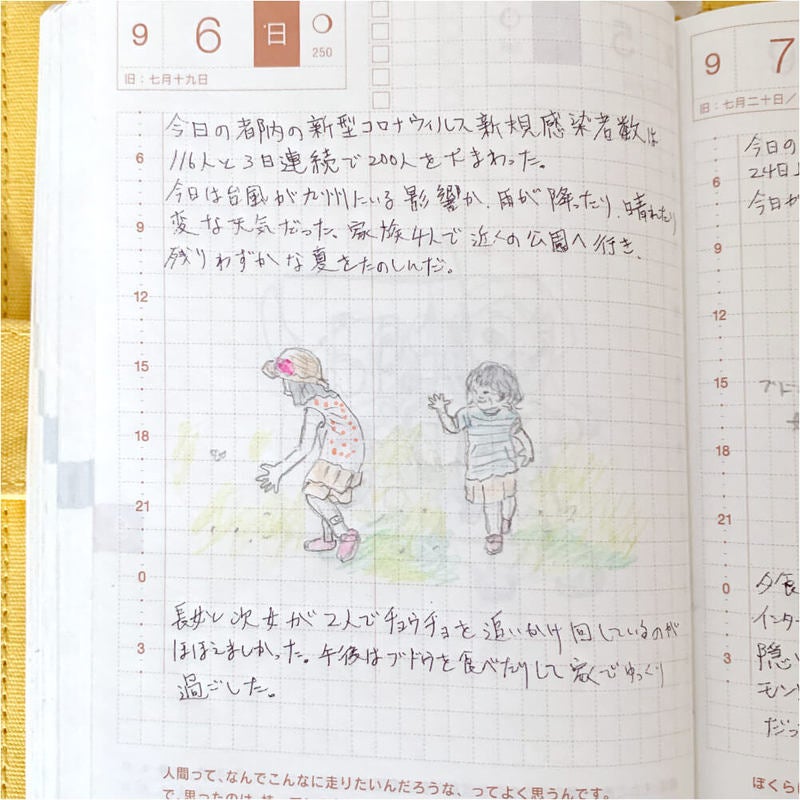 9 6 日
250
旧：七月十九日
今日の都内の新型コロナウィルス新規感染者数は
116人と3日連続で200人を下まわった。
今日は台風が九州にいる影響か、雨が降ったり、晴れたり
変な天気だった。家族4人で近くの公園へ行き、
残りわずかな夏をたのしんだ。
6
9
12
15
18
21
0
3
長女と次女が2人でチョウチョを追いかけ回しているのが
ほほえましかった。午後はブドウを食べたりして家でゆっくり
過ごした。
人間って、なんでこんなに走りたいんだろうな、ってよく思うんです。
で、思ったのは、
9 7
旧：七月二十日／
今日の
24日
今日が
6
9
12
15
18
21
0
3
ブドー
夕食
インター
隠い
モン
だっ
ぼくら